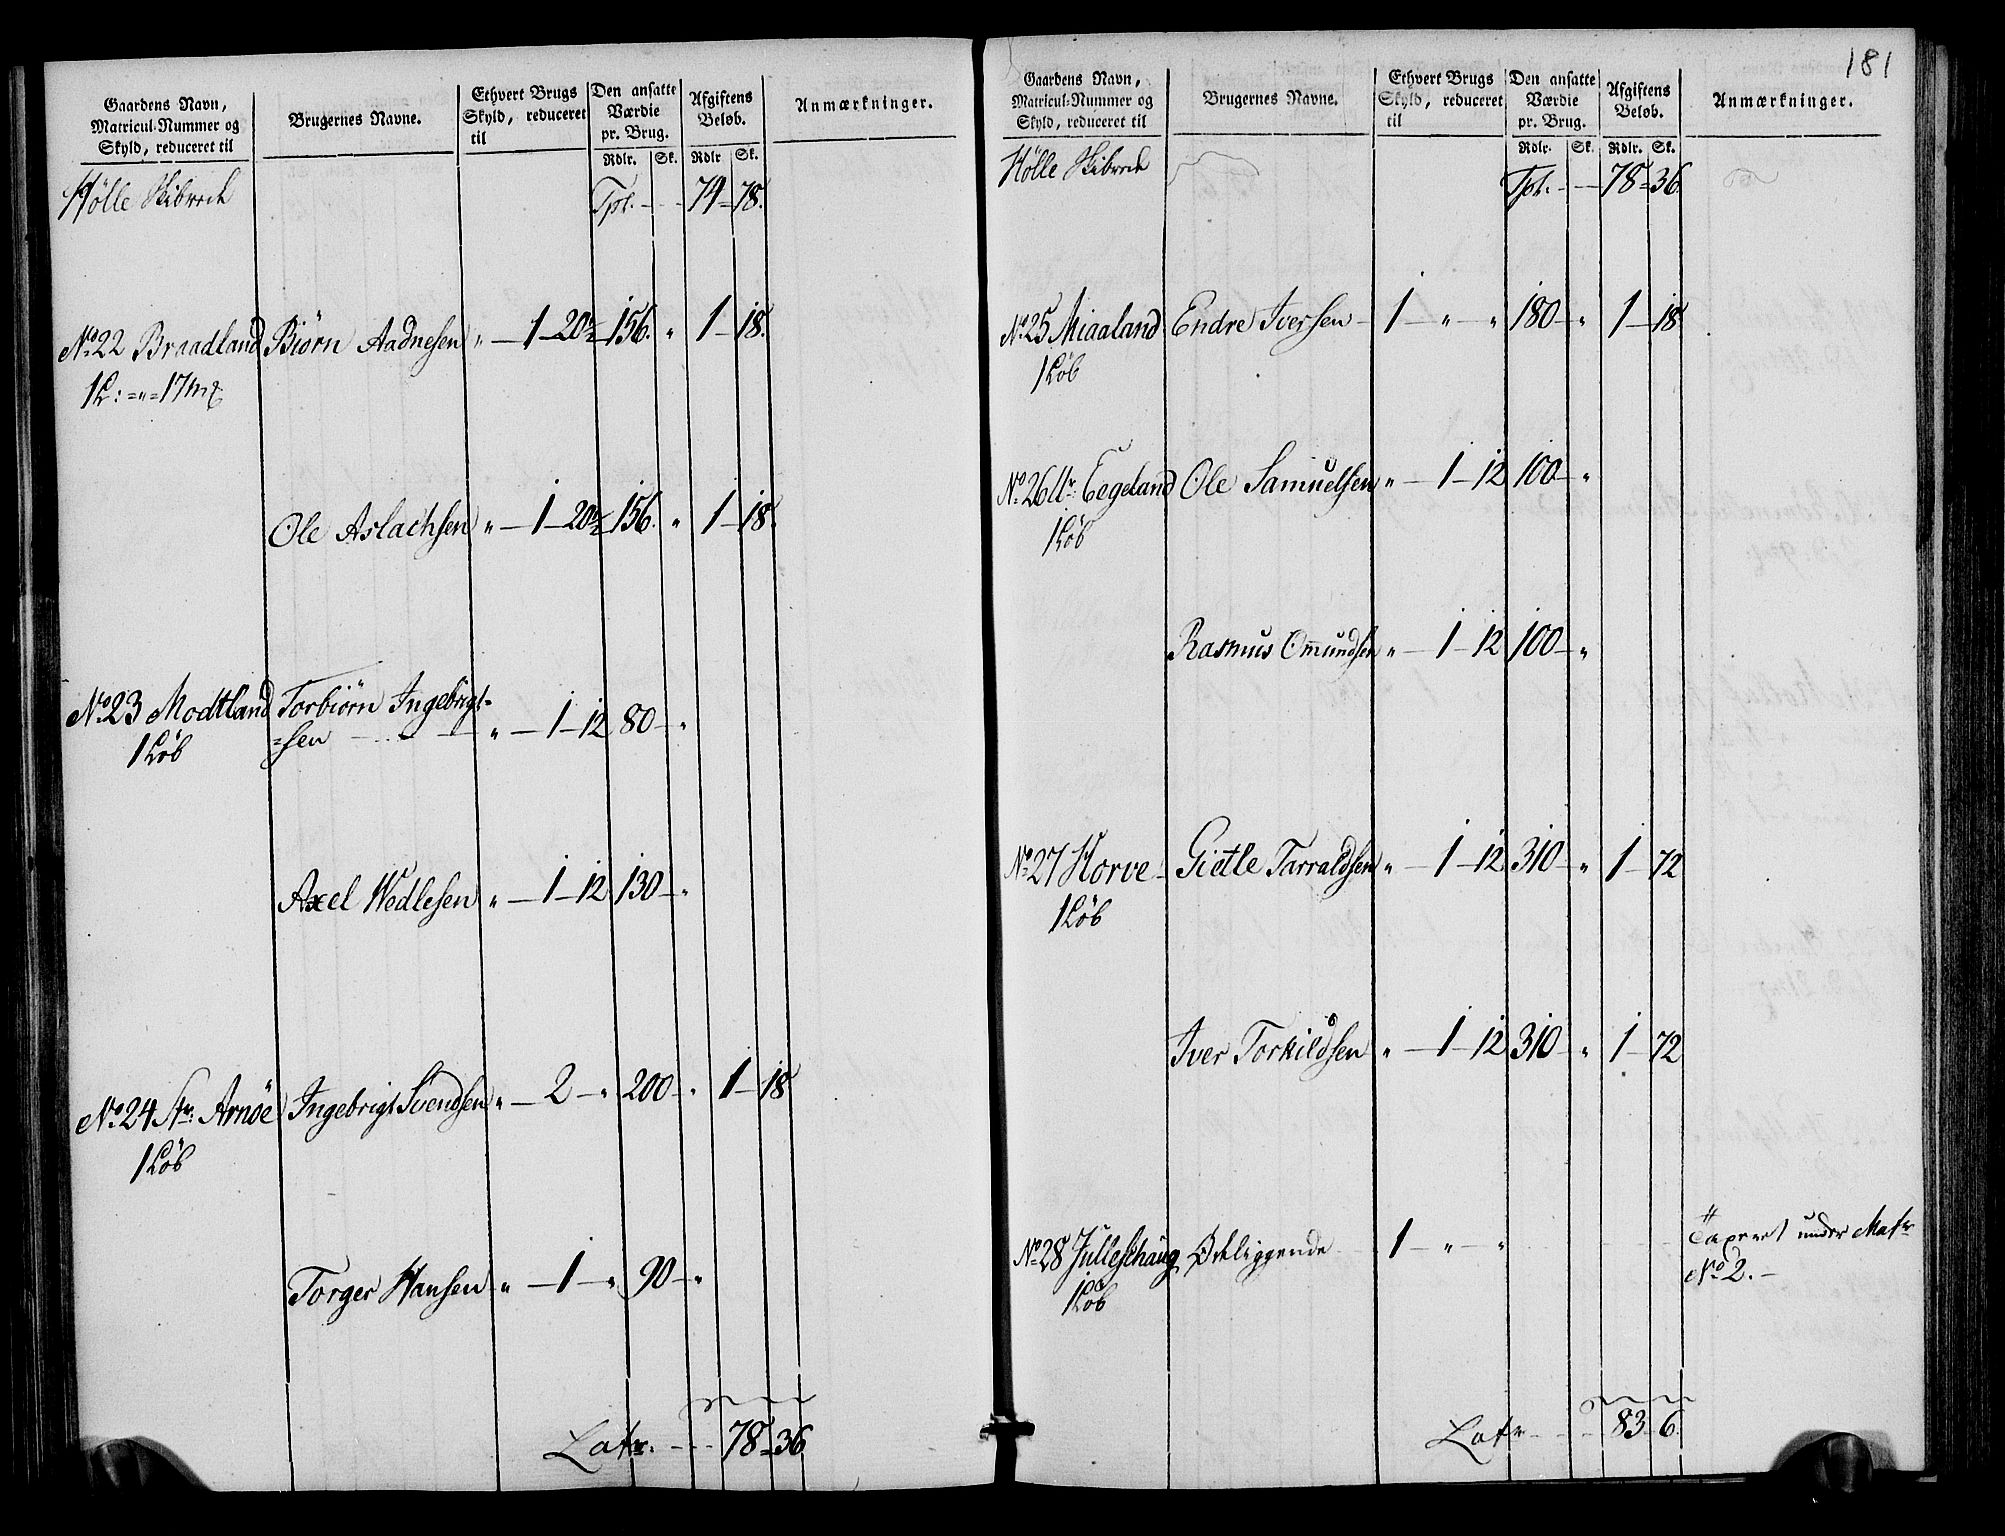 Gaardens Navn,
Matricul-Nummer og
Skyld, reduceret til
Brugernes Navne.
Ethvert Brugs
Skyld, reduceret
til
Den ansatte
Værdie
pr. Brug.
Rdlr. Sk.
Afgiftens
Beløb.
Rdlr Sk.
Anmærkninger.
Hølle Skibrede Tpt. 74 - 78.
No 22 Braadland Biørn Aadnesen " - 1 - 20½ 156. " 1 - 18.
1 L: = " = 17 m
Ole Aslachsen " - 1 - 20½ 156. " 1 - 18.
No 23 Modtland Torbiørn Ingebrigt=
=sen " - 1 - 12 80 - "
1 Løb
Axel Wedlesen " - 1 - 12 130 - "
No 24 Str. Arnøe Ingebrigt Svendsen " - 2 - " 200 - " 1 - 18
1 Løb
Torger Hansen " - 1 - " 90 - "
Latr. 78 = 36
181
Gaardens Navn,
Matricul-Nummer og
Skyld, reduceret til
Brugernes Navne.
Ethvert Brugs
Skyld, reduceret
til
Den ansatte
Værdie
pr. Brug.
Rdlr. Sk.
Afgiftens
Beløb.
Rdlr. Sk.
Anmærkninger.
Hølle Skibrede Tpt. 78 - 36
No 25 Miaaland Endre Iversen - 1 - " - " 180 - " 1 - 18
1 Løb
No 26 Eegeland Ole Samuelsen " - 1 - 12 100 - "
1 Løb
Rasmus Omundsen " - 1 - 12 100 - "
No 27 Horve Gietle Tarraldsen " - 1 - 12 310 - " 1 - 72
1 Løb
Iver Torkildsen " - 1 - 12 310 - " 1 - 72
No 28 Julleschaug Ødeliggende 1 - " - "
1 Løb
Taxeret under Matr
No 2. -
Latr 83 - 6